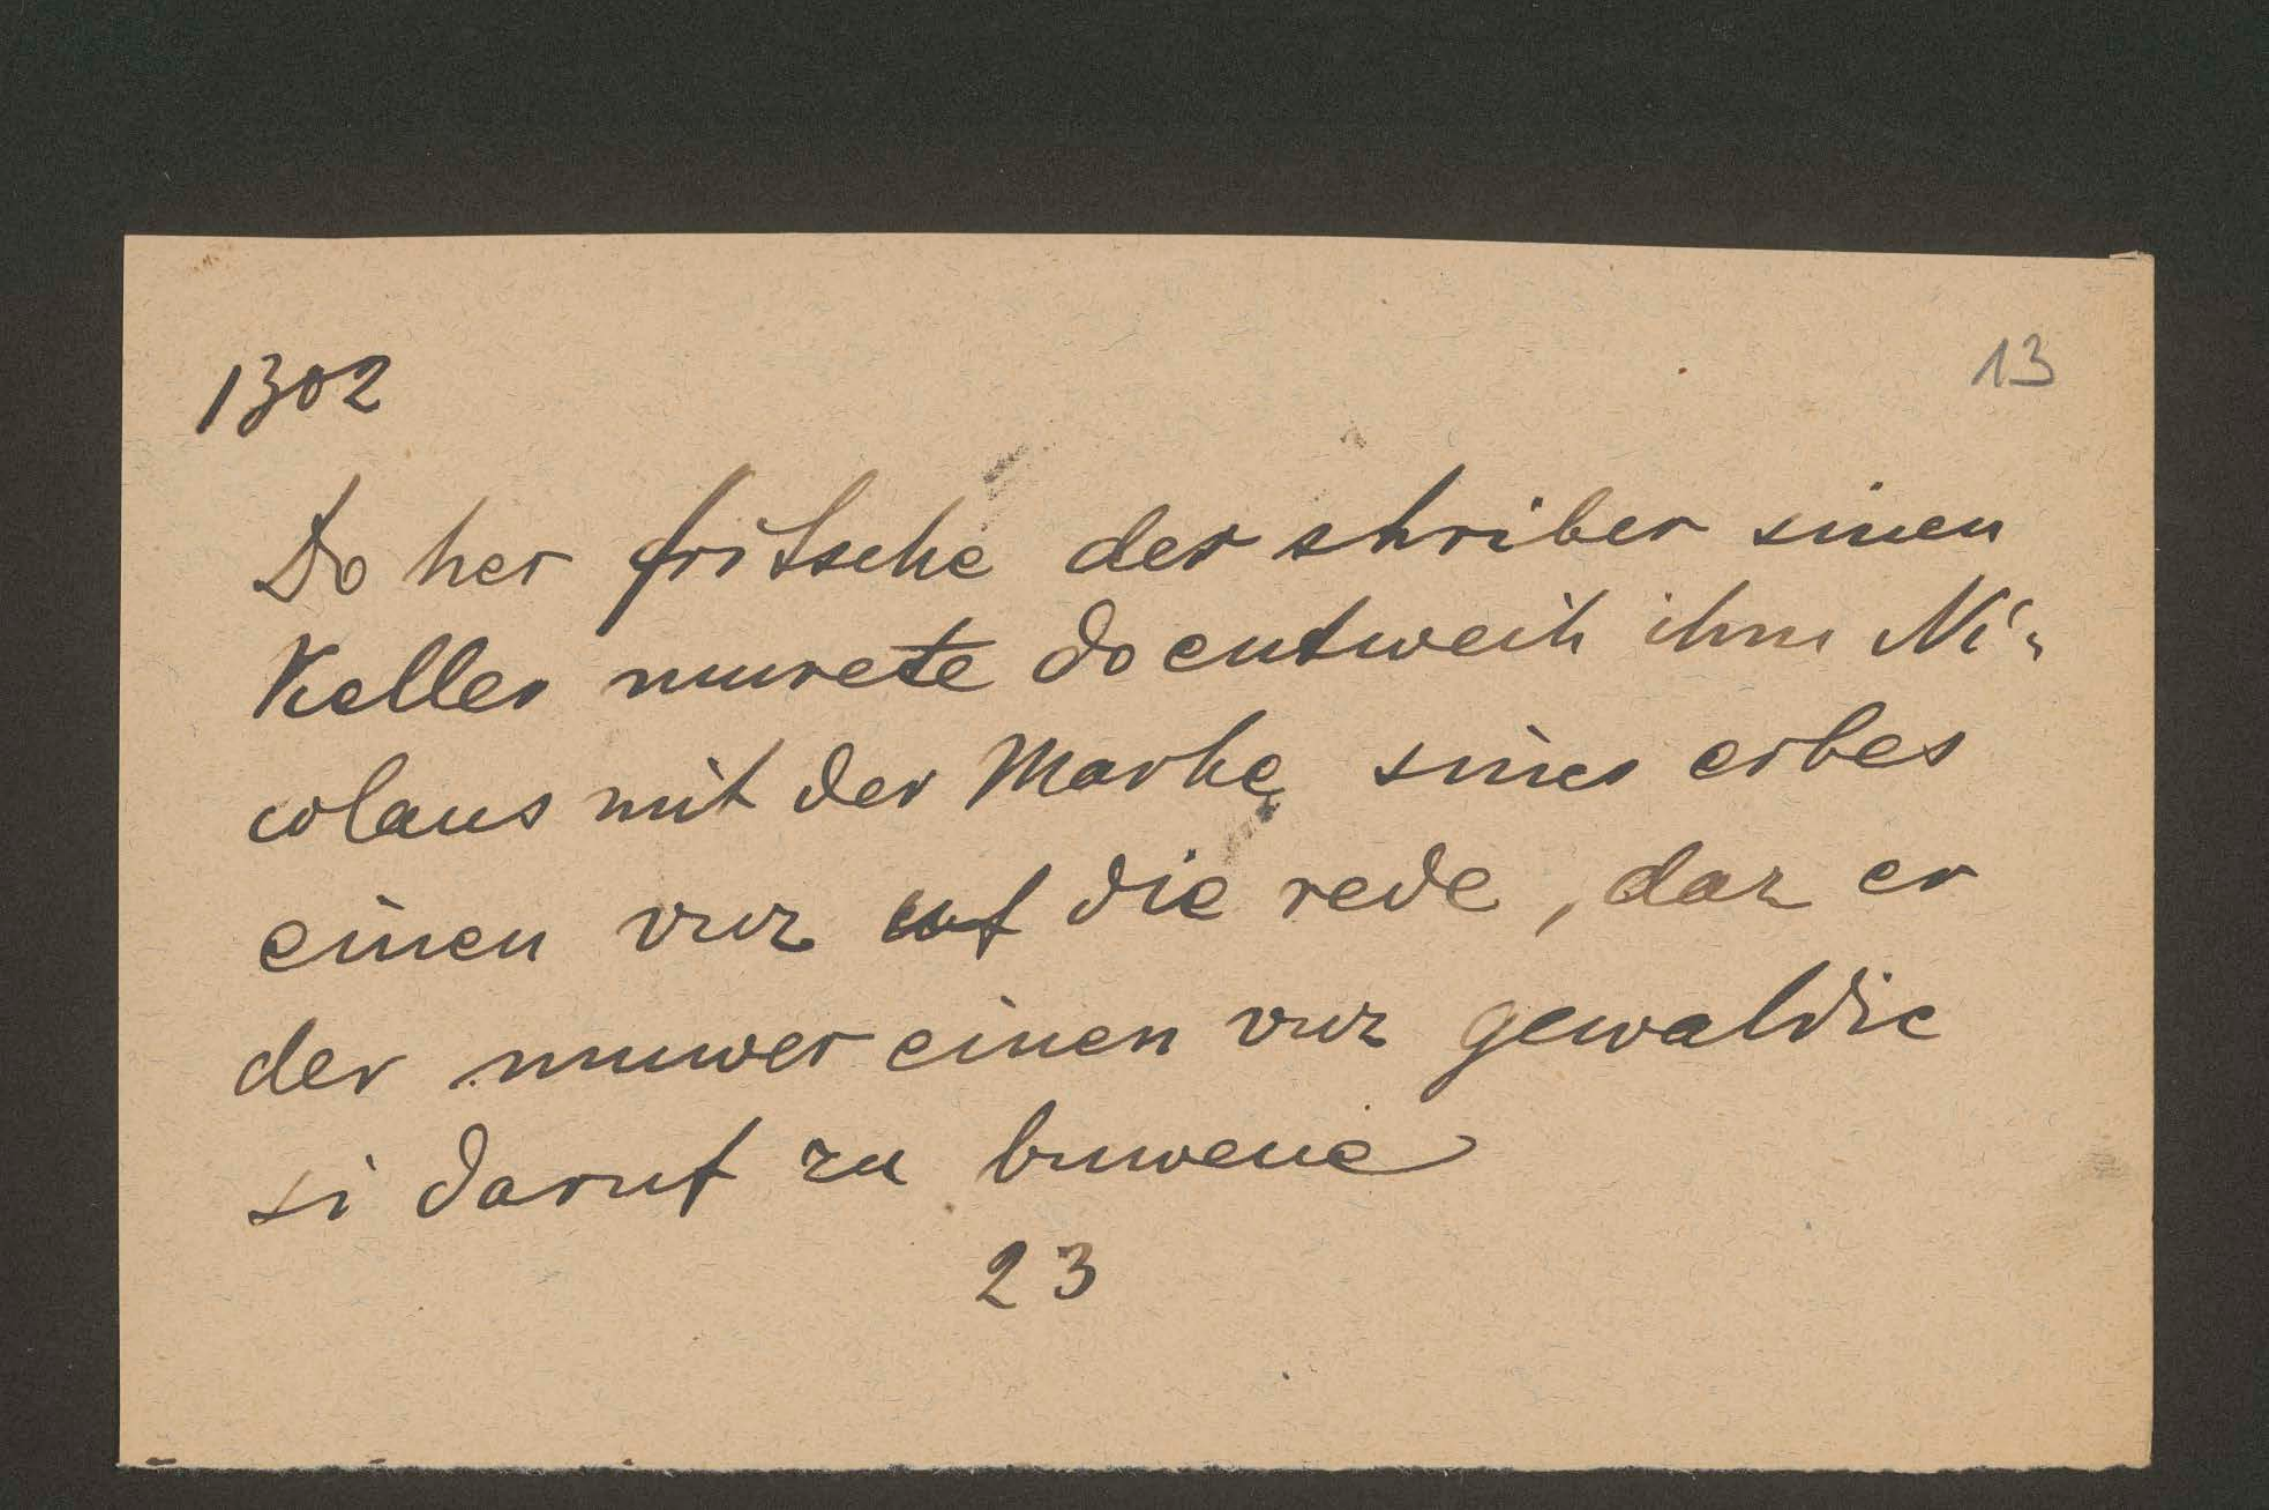 1302
13
Do her fritsche der shriber sinen
Keller murete do entweih ihm Ni-
colaus mit der Marke sines erbes
einen vuz uf die rede, daz er
der muwer einen vuz gewaldic
si daruf zu buwene
23